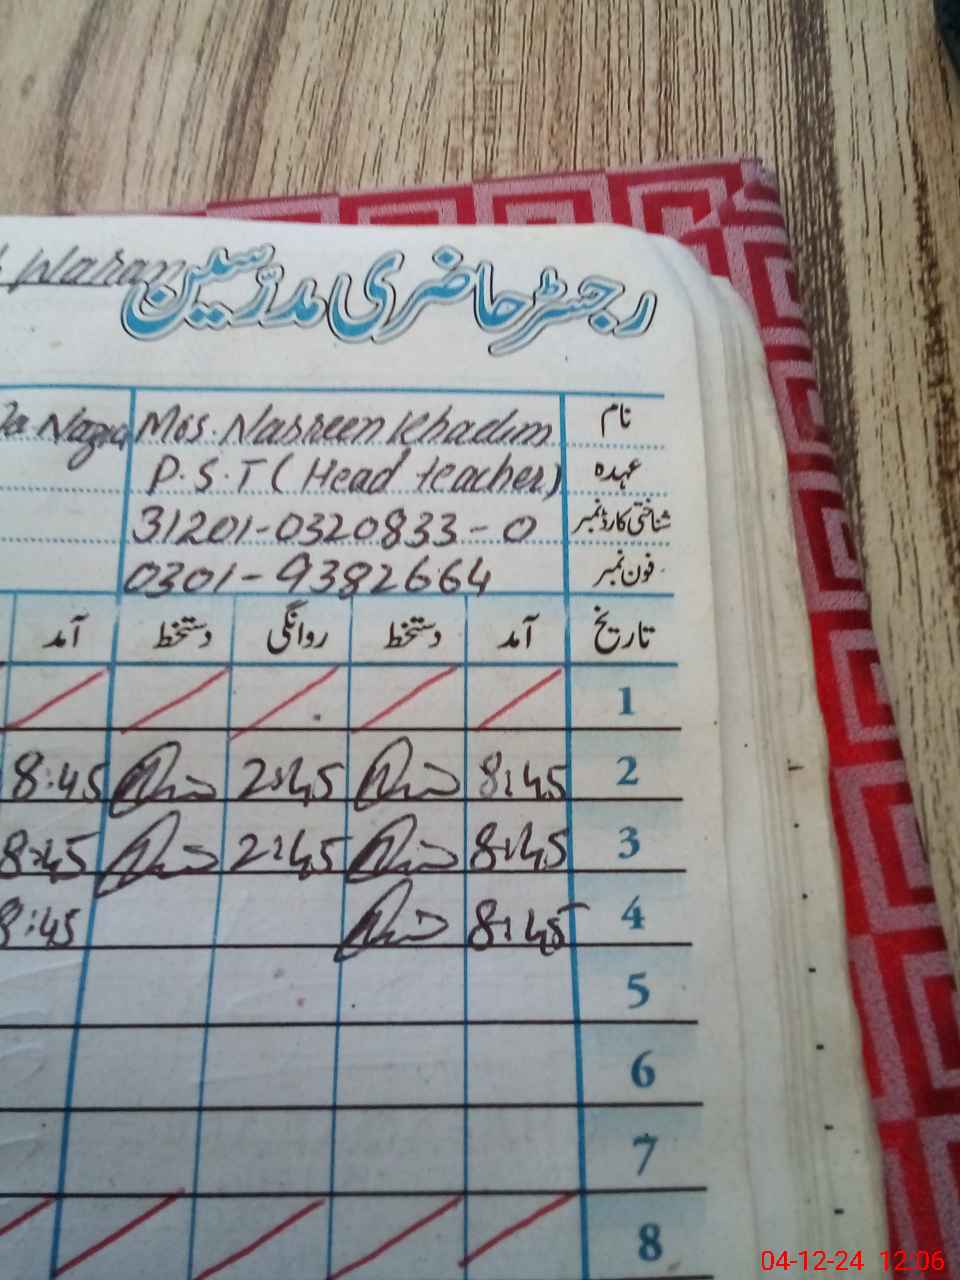 رجسٹر حاضری مدرسین
نام Mrs. Nasreen Khadim
عہدہ P.S.T (Head teacher)
شناختی کارڈ نمبر 31201-0320833-0
فون نمبر 0301-9382664
تاریخ آمد دستخط روانگی دستخط آمد
1
2 8:45 2:45 8:45
3 8:45 2:45 8:45
4 8:45 8:45
5
6
7
8
04-12-24 12:06